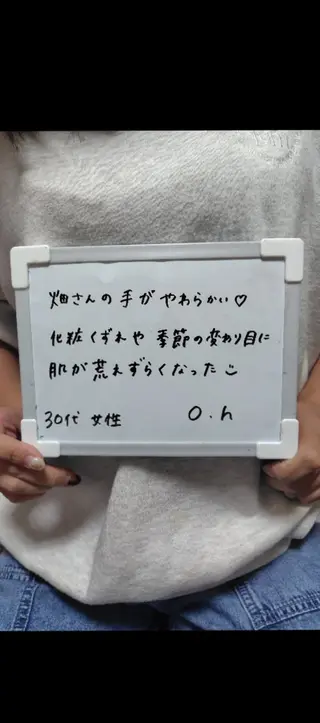 畑さんの手がやわらかい♡
化粧くずれや季節の変わり目に
肌が荒れずらくなった
30代 女性 O.h